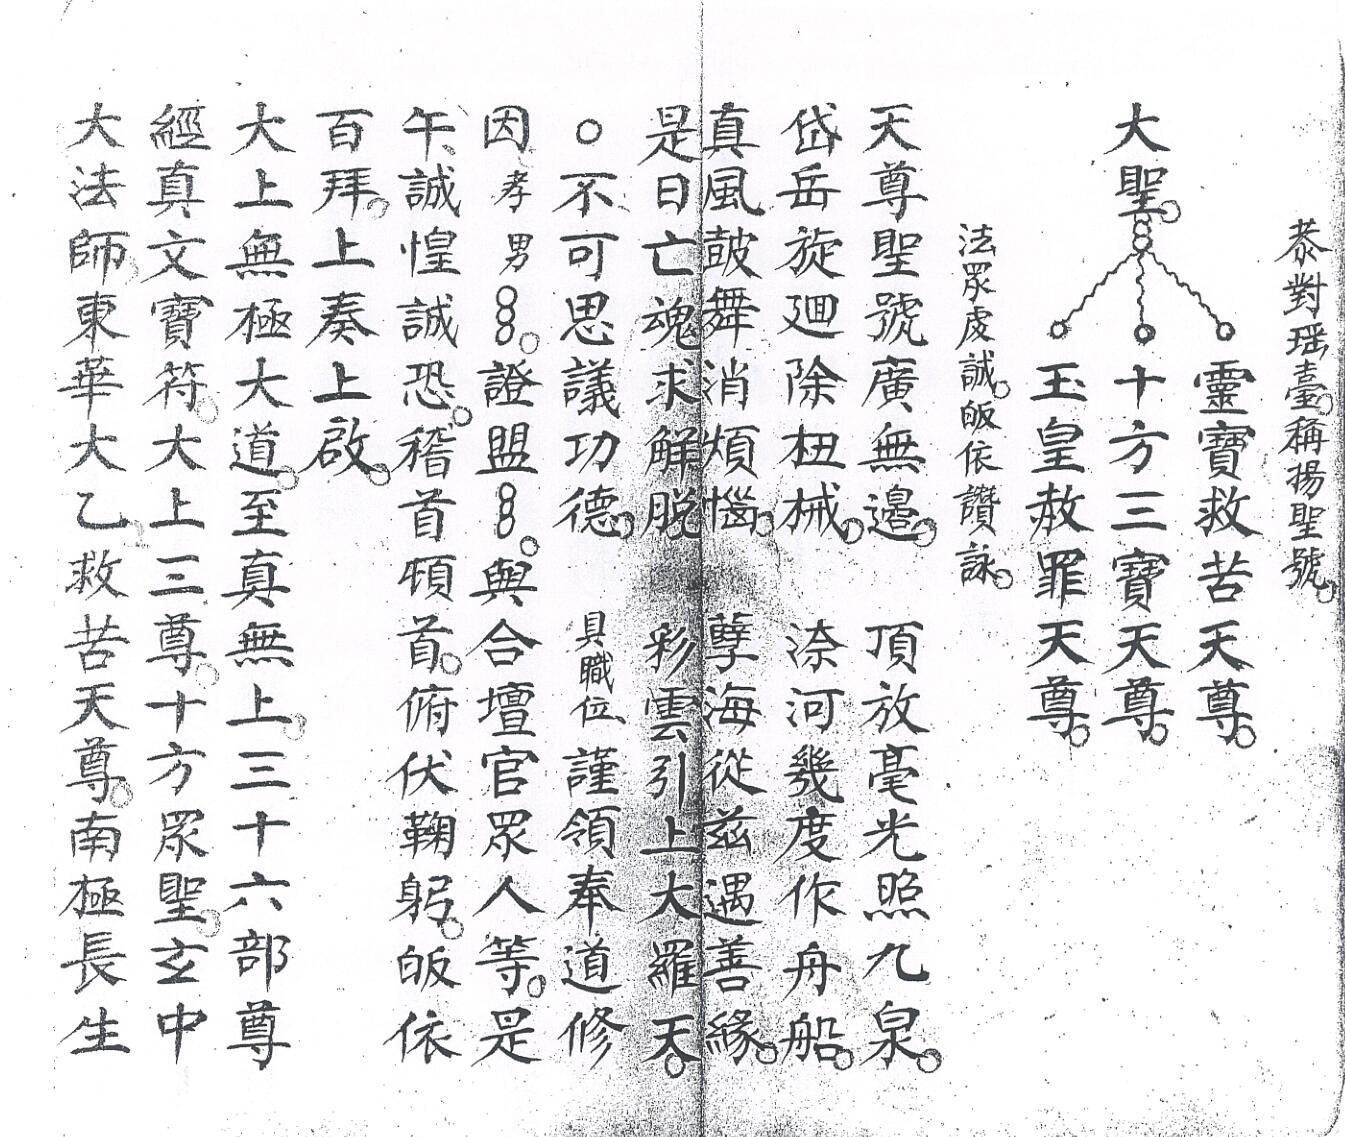 恭對瑶臺。稱揚聖號。
大聖。
靈寶救苦天尊。
十方三寶天尊。
玉皇赦罪天尊。
法眾虔誠。皈依讚詠。
天尊聖號廣無邊。 頂放毫光照九泉。
岱岳旋迴除杻械。 渿河幾度作舟船。
真風鼓舞消煩惱。 孽海從兹遇善緣。
是日亡魂求解脱 彩雲引上大羅天。
○不可思議功德。 具職位 謹領奉道修
因孝男。證盟。與合壇官眾人等。是
午誠惶誠恐。稽首頓首。俯伏鞠躬。皈依
百拜。上奏上啟。
大上無極大道。至真無上。三十六部尊
經真文寶符。大上三尊。十方眾聖。玄中
大法師東華大乙救苦天尊。南極長生